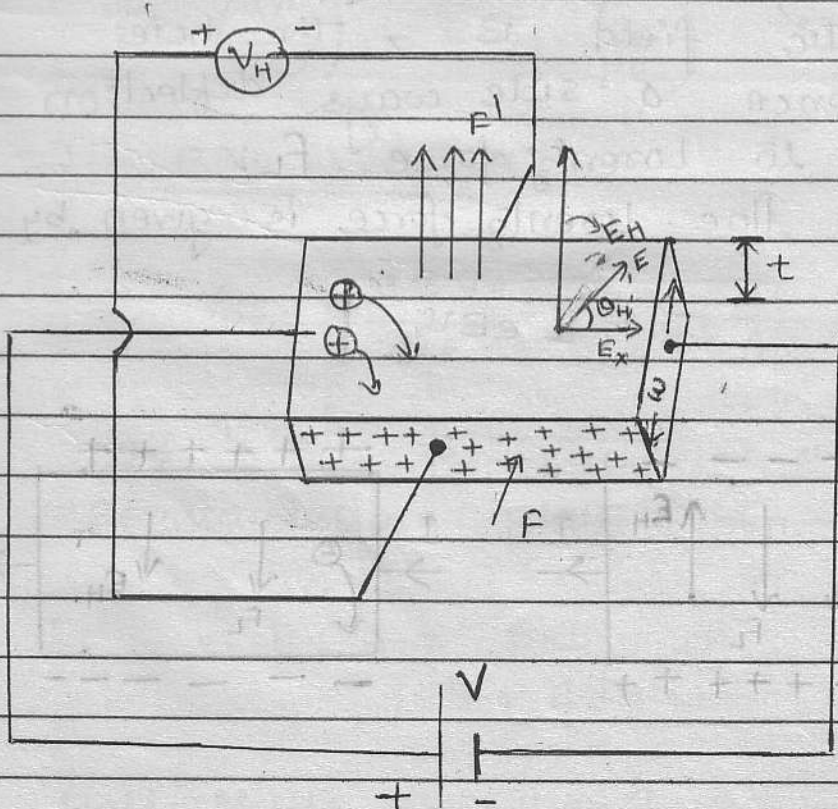 + V_H -
F'
E_H
E
θ_H
E_x
t
w
+ + + + + + + + +
+ + + + + + + + +
F
V
+ -